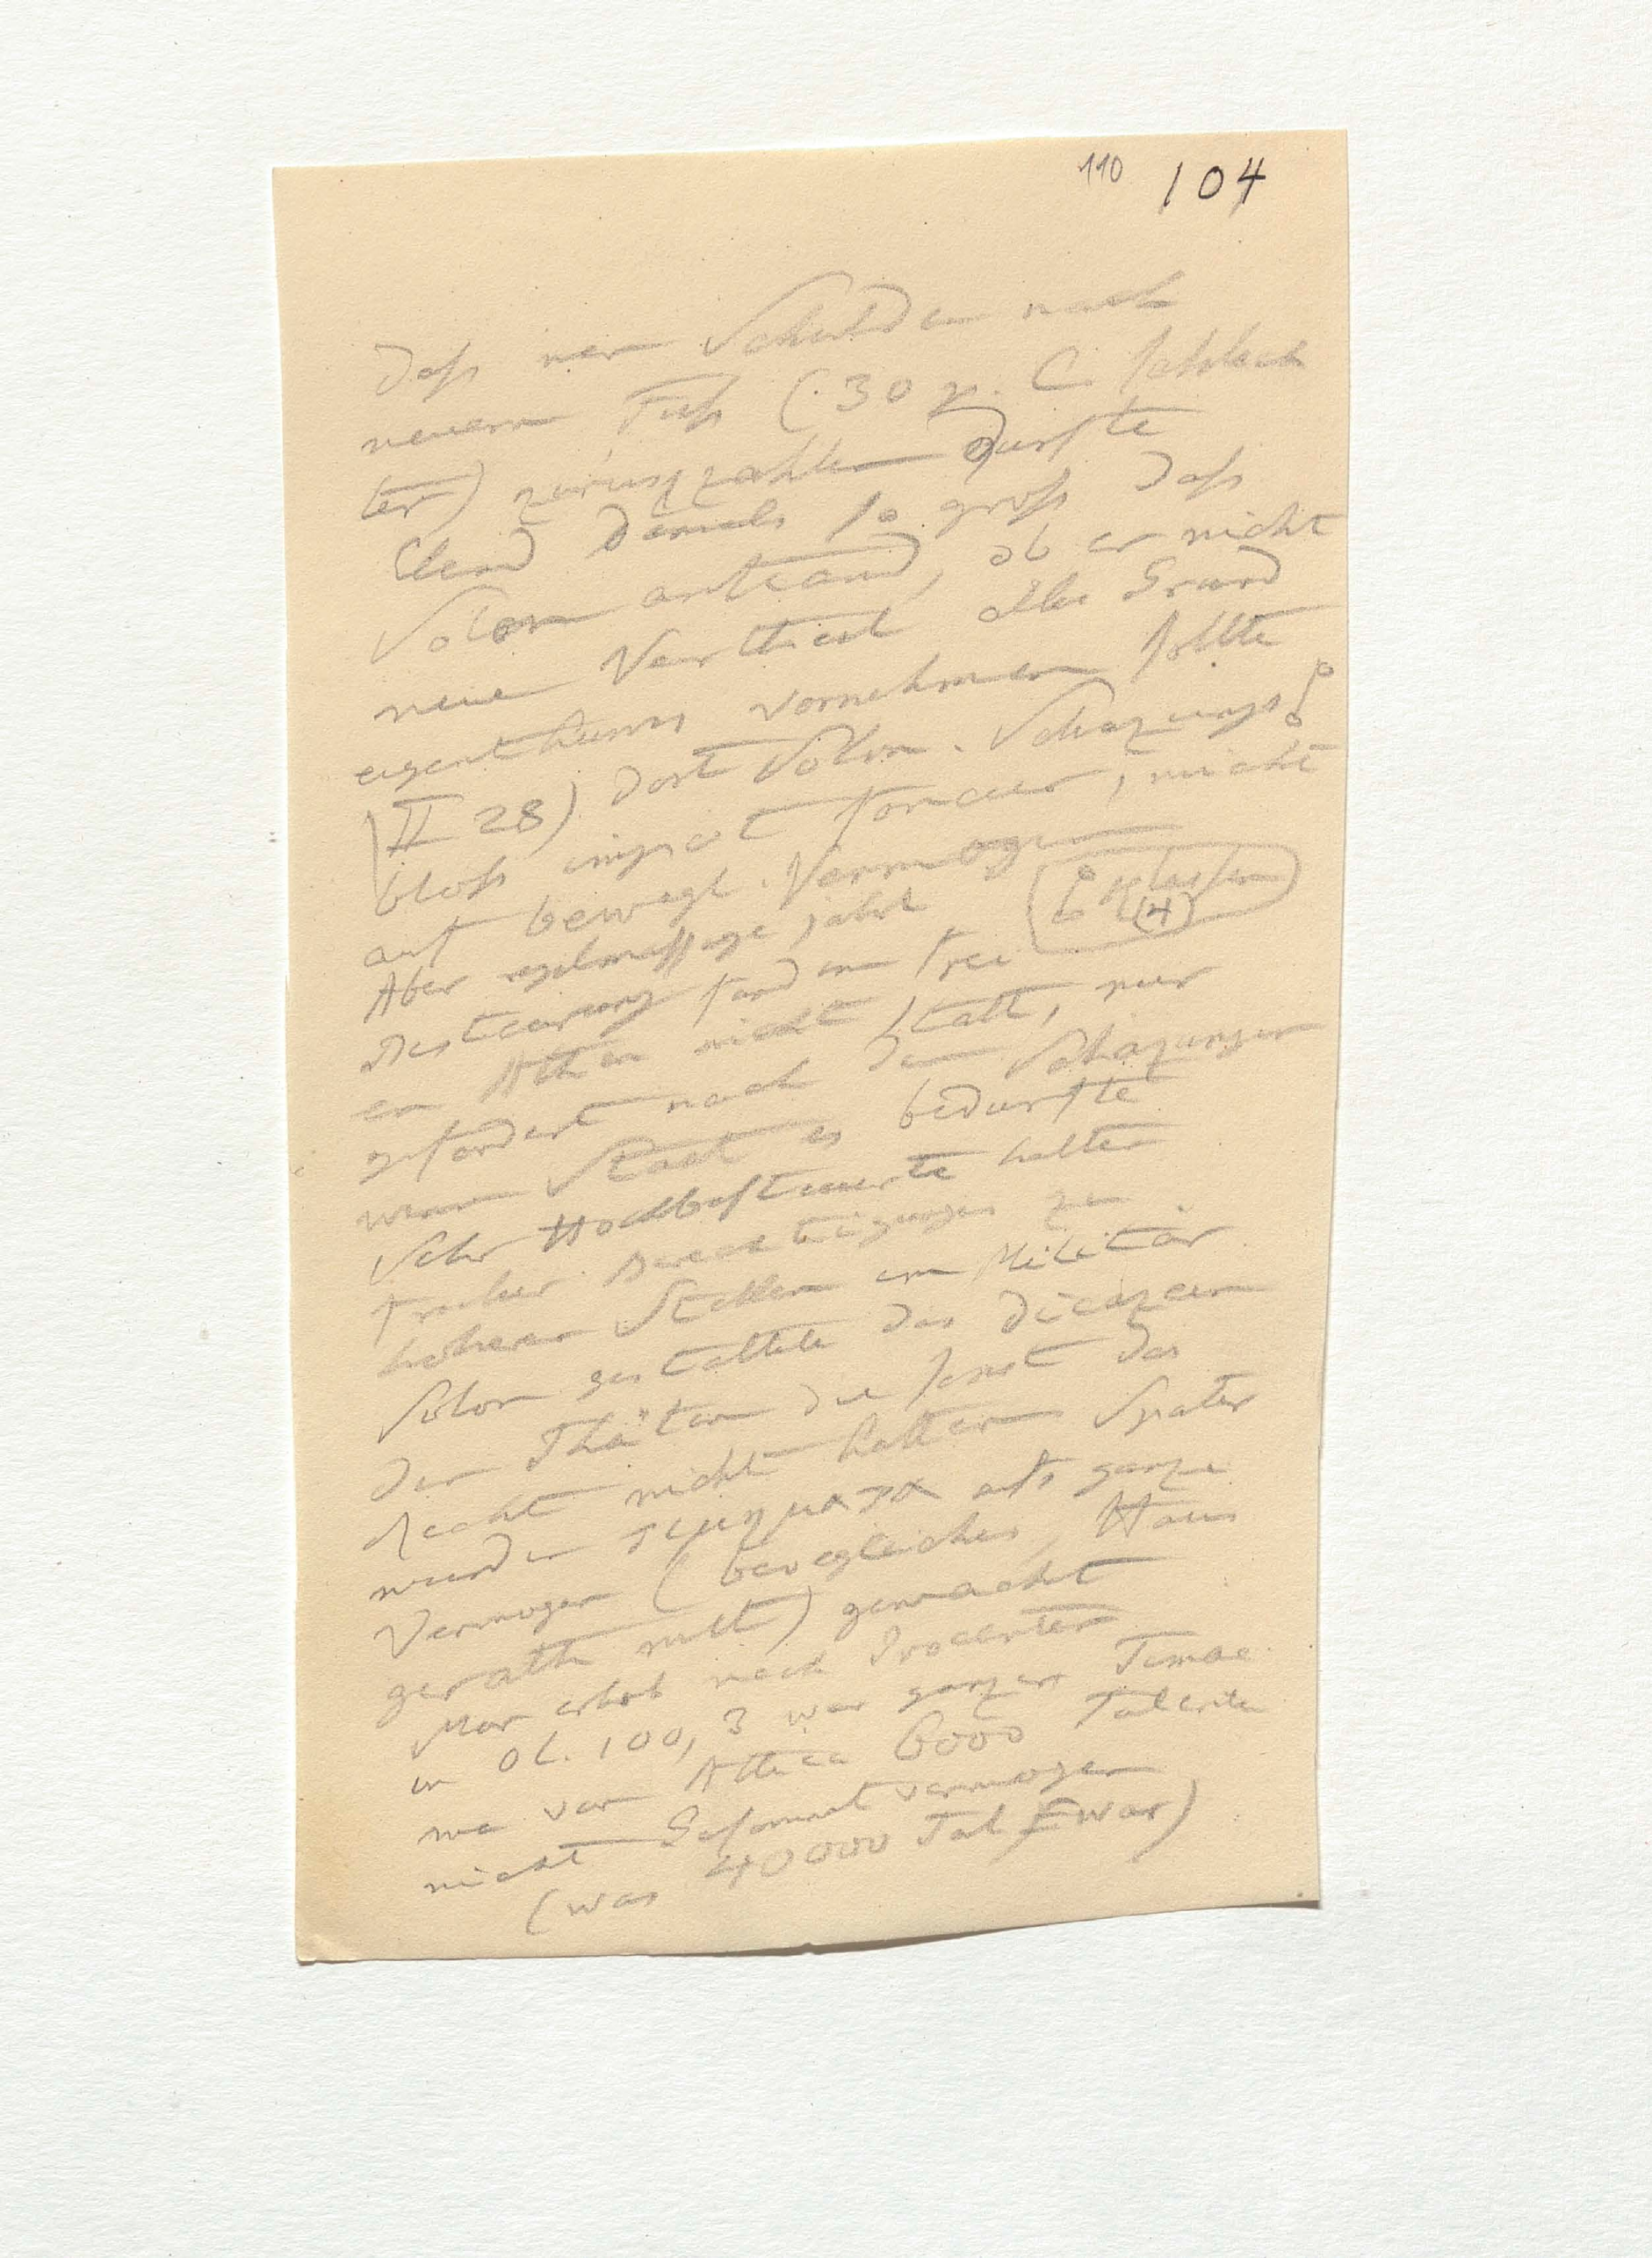 110 104
Dass man Schulden nach
neuem Fuss (30 p. C schlech
ter) zurückzahlen durfte
Elend damals so gross dass
Solon anstand, ob er nicht
neue Vertheil alles Grund
eigenthums vornehmen sollte
(II 28) Dort Solon. Schazungs
bloss impot foncier, nicht
auf bewegl. Vermogen
Aber regelmassige jahrl
(4) Klassen
Besteurung fand im frei
en Athen nicht statt, nur
gefordert nach den Schazungen
wenn Staat es bedurfte
Sehr Hochbesteuerte hatten
fruher Berechtigungen zu
hoheren Stellen im Militär
Solon gestattete das
den Thäten die sonst das
Recht nicht hatten Spater
wurden τιμηματα als ganze
Vermogen (bewegliches, Haus
gerath mit) gemacht
Man erhob nach Procenten
in Ol. 100, 3 war ganzer Timae
ma von Attica 6000 Talente
nicht Gesammtvermogen
(was 40000 Tal war)